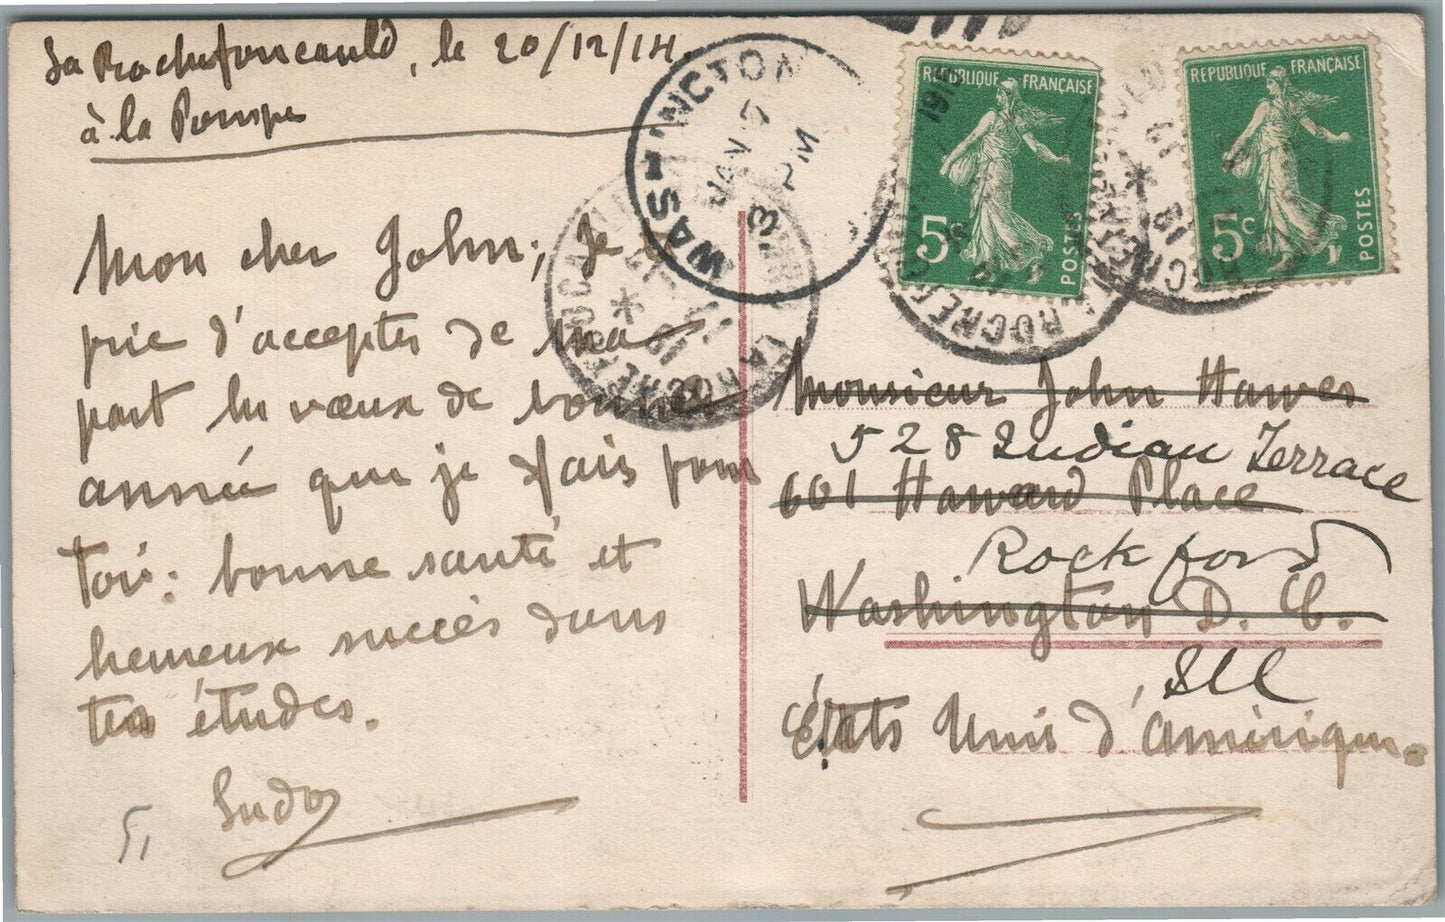 La Rochefoucauld, le 20/12/14.
à la Pompe
Mon cher John; Je te
prie d'accepter de ma
part les vœux de bonne
année que je fais pour
toi: bonne santé et
heureux succès dans
tes études.
51
WASHINGTON
JAN 7
3 PM
1915
LA ROCHEFOUCAULD
REPUBLIQUE FRANÇAISE
5c
POSTES
REPUBLIQUE FRANÇAISE
5c
POSTES
Monsieur John Hawes
528 Indian Terrace
601 Haward Place
Rockford
Washington D. C.
Ill
États Unis d'Amérique.